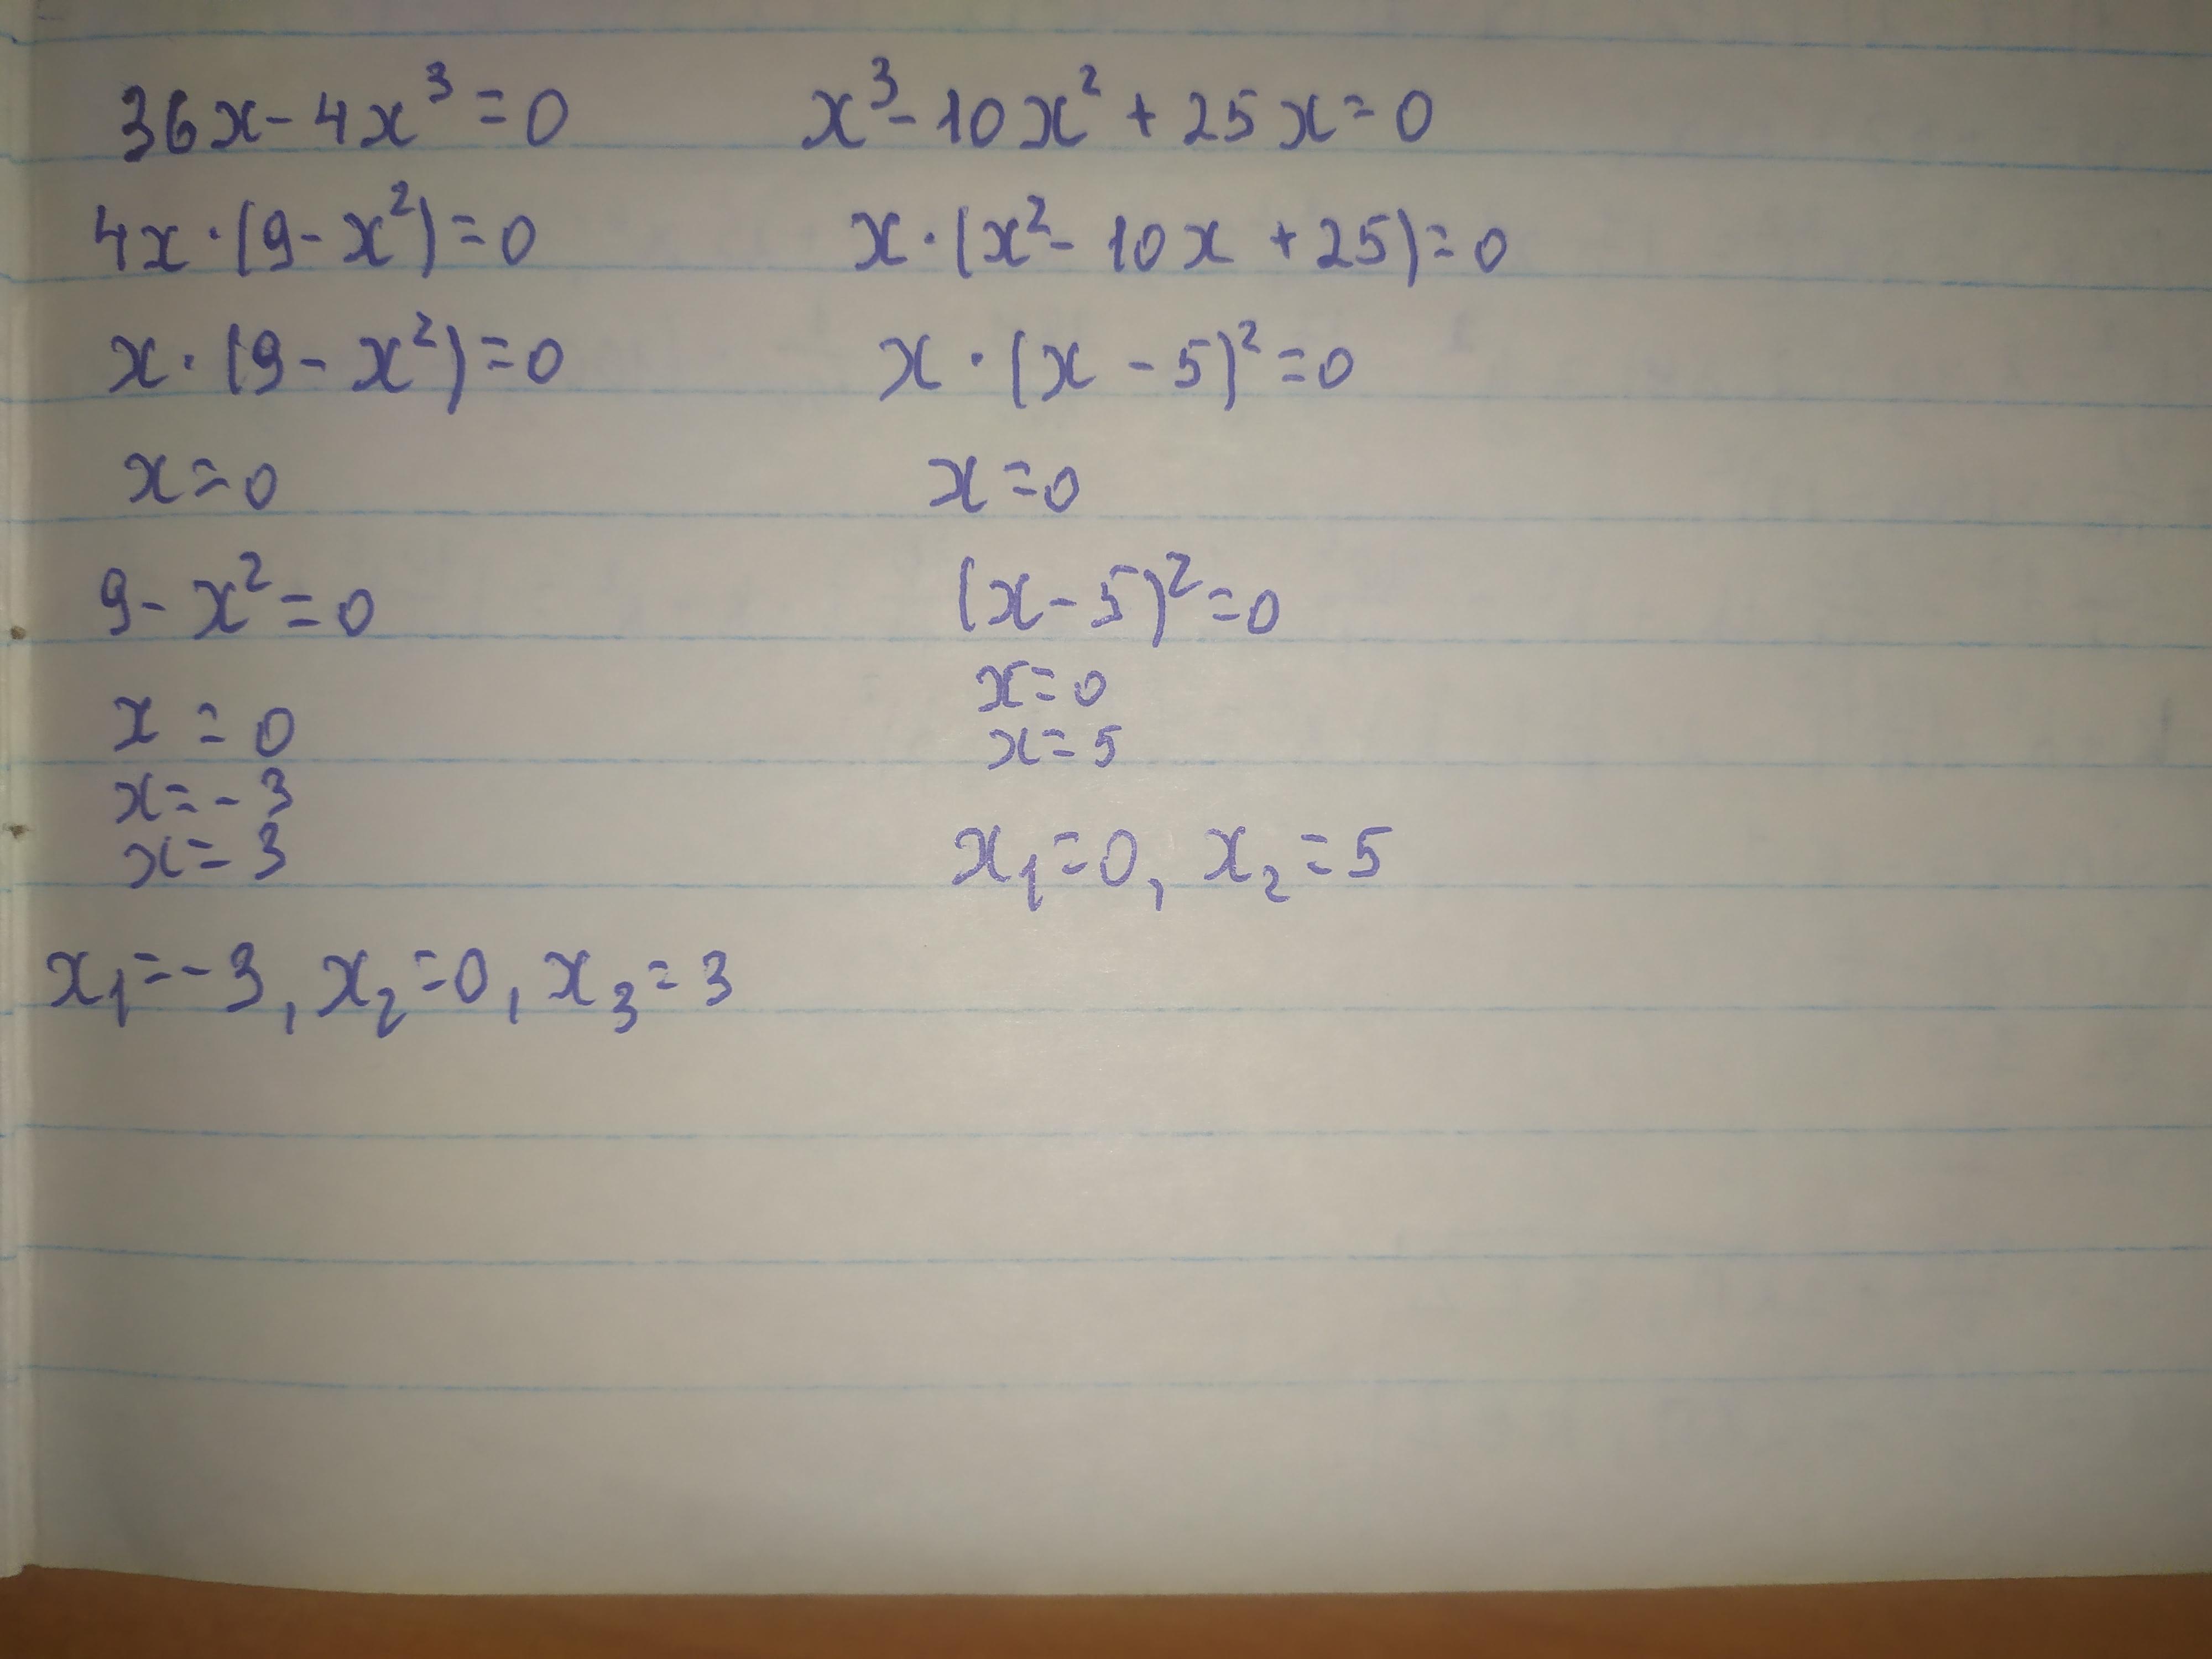 36x-4x³=0
4x·(9-x²)=0
x·(9-x²)=0
x=0
9-x²=0
x=0
x=-3
x=3
x₁=-3, x₂=0, x₃=3
x³-10x²+25x=0
x·(x²-10x+25)=0
x·(x-5)²=0
x=0
(x-5)²=0
x=0
x=5
x₁=0, x₂=5